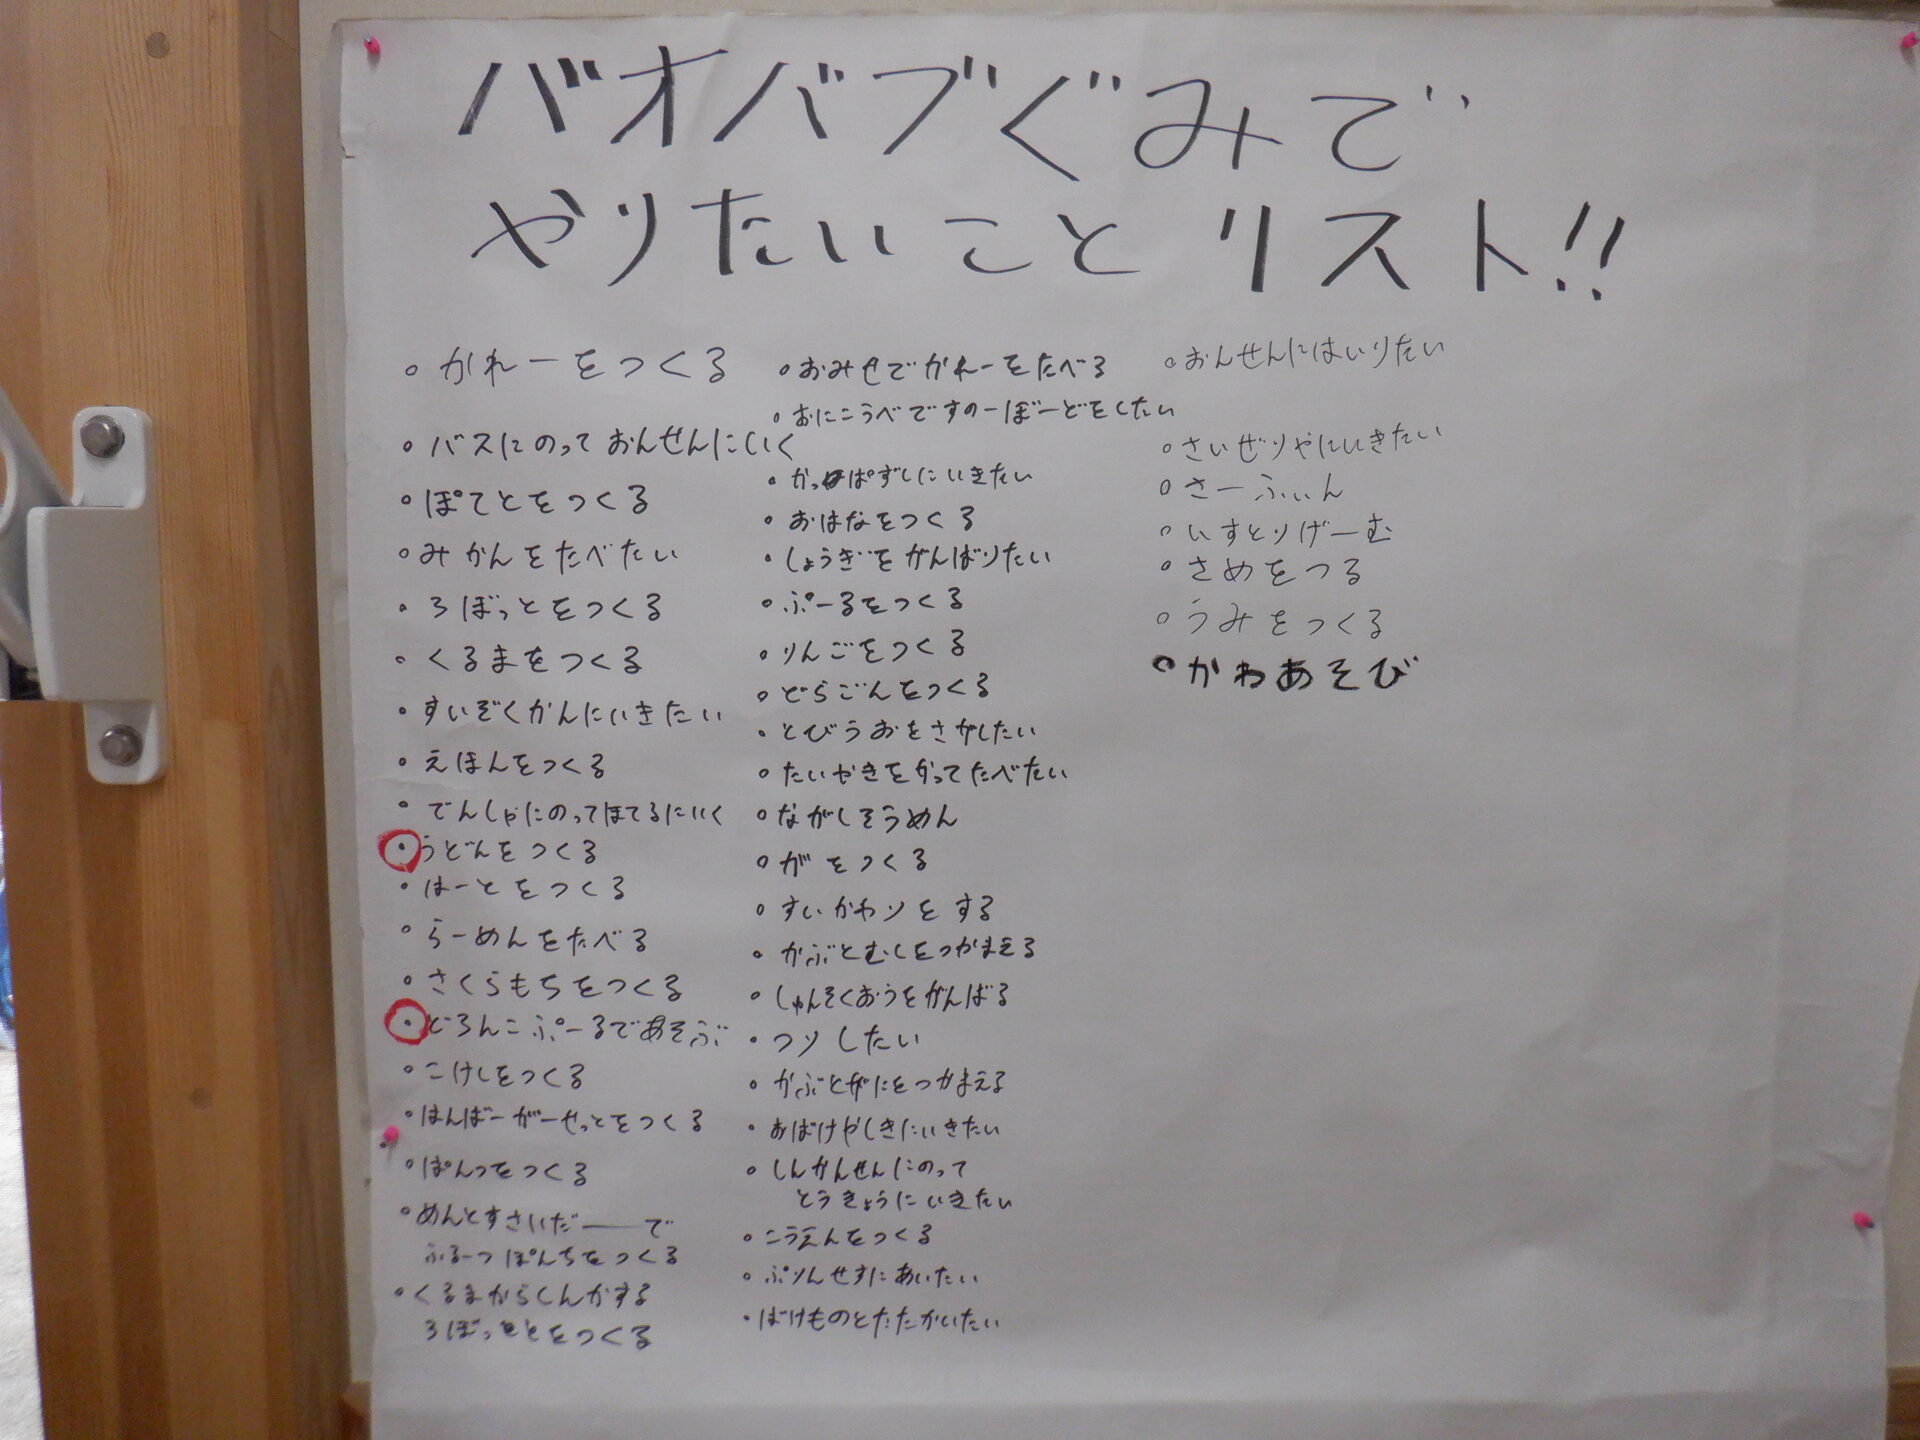 バオバブぐみで
やりたいこと リスト!!
。かれーをつくる
。バスにのって おんせんにいく
。ぽてとをつくる
。みかんをたべたい
。ろぼっとをつくる
。くるまをつくる
。すいぞくかんにいきたい
。えほんをつくる
。でんしゃにのってほてるにいく
。うどんをつくる
。はーとをつくる
。らーめんをたべる
。さくらもちをつくる
。どろんこぷーるであそぶ
。こけしをつくる
。はんばーがーせっとをつくる
。ぱんつをつくる
。めんとすさいだーーで
ふるーつぽんちをつくる
。くるまからしんかする
ろぼっとをつくる
。おみせでかれーをたべる
。おにこうべですのーぼーどをしたい
。かっぱずしにいきたい
。おはなをつくる
。しょうぎをがんばりたい
。ぷーるをつくる
。りんごをつくる
。どらごんをつくる
。とびうおをさがしたい
。たいやきをかってたべたい
。ながしそうめん
。がをつくる
。すいかわりをする
。かぶとむしをつかまえる
。しゅんそくおうをがんばる
。つりしたい
。かぶとがにをつかまえる
。おばけやしきにいきたい
。しんかんせんにのって
とうきょうにいきたい
。こうえんをつくる
。ぷりんせすにあいたい
。ばけものとたたかいたい
。おんせんにはいりたい
。さいぜりやにいきたい
。さーふぃん
。いすとりげーむ
。さめをつる
。うみをつくる
。かわあそび